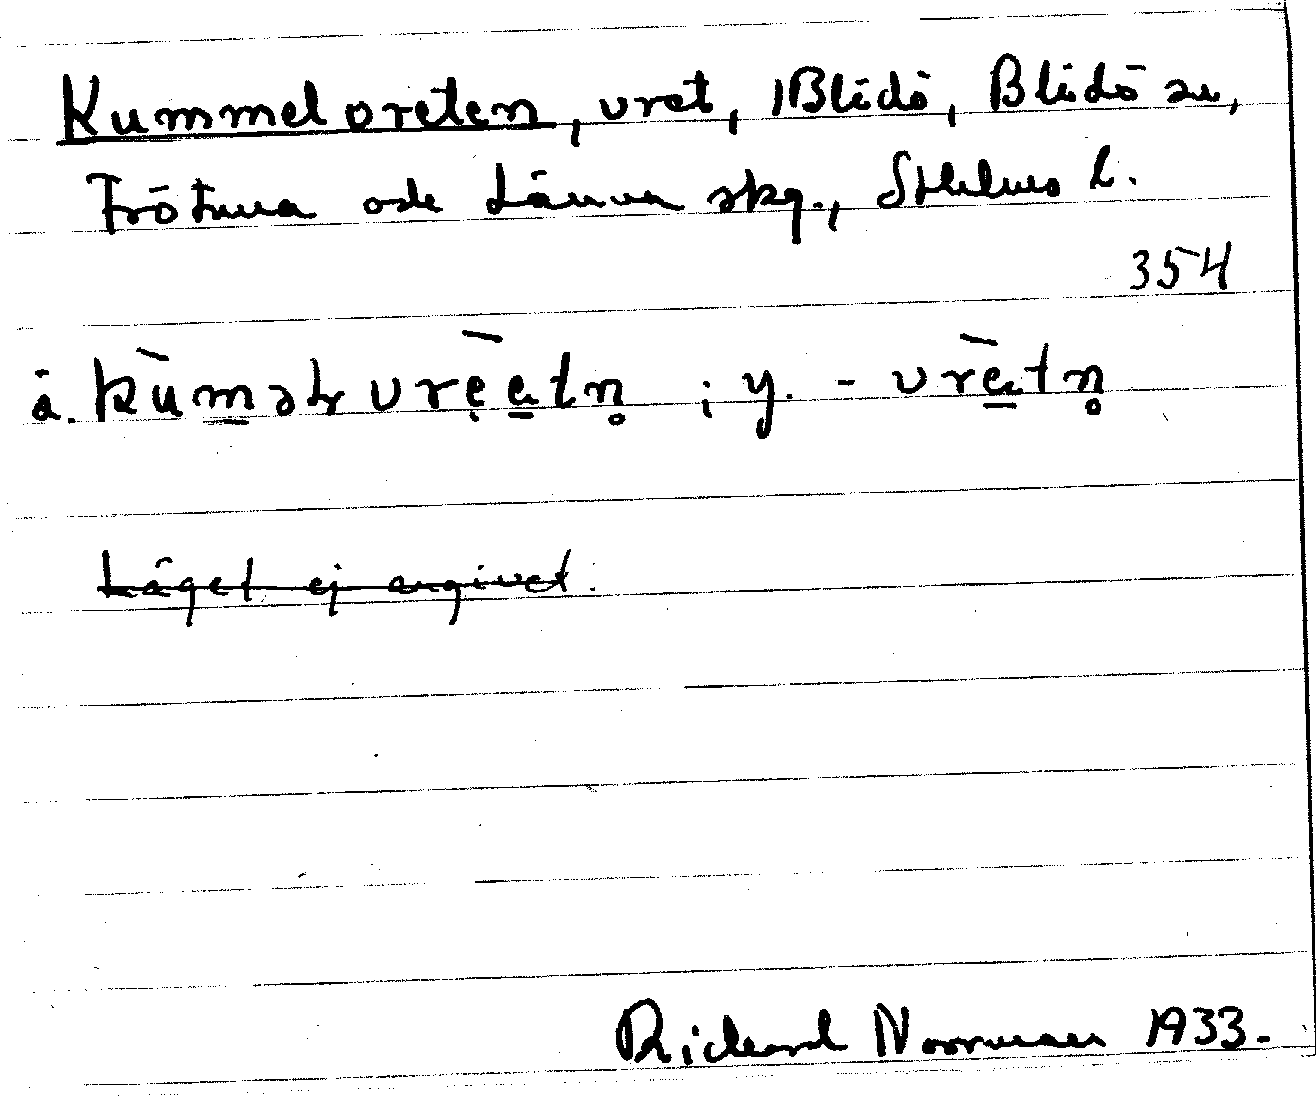 Kummelvreten, vret, Blidö, Blidö sn,
Frötuna och Länna skg., Sthlms l.
354
ä. kùməlvrèe̠tn̥ ; y. -vrèe̠tn̥
Läget ej angivet.
Rickard Noorman 1933.